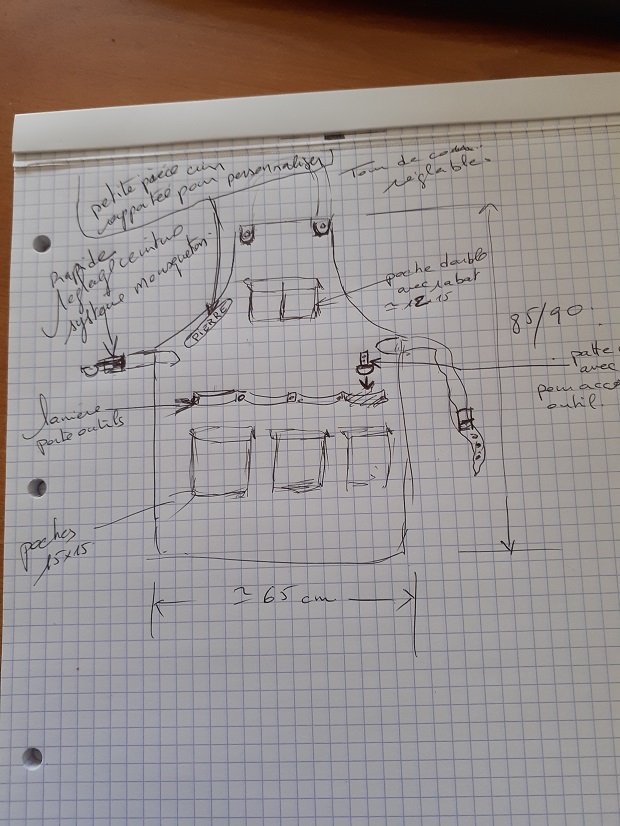 petite pièce cuir
rapportée pour personnaliser
Tour de cou
réglable.
Rapide
réglage ceinture
système mousqueton.
poche double
avec rabat
≃ 12 x 15
PIERRE
85/90.
patte
avec
pour acc
outil.
lanière
porte outils
poches
15x15
≃ 65 cm